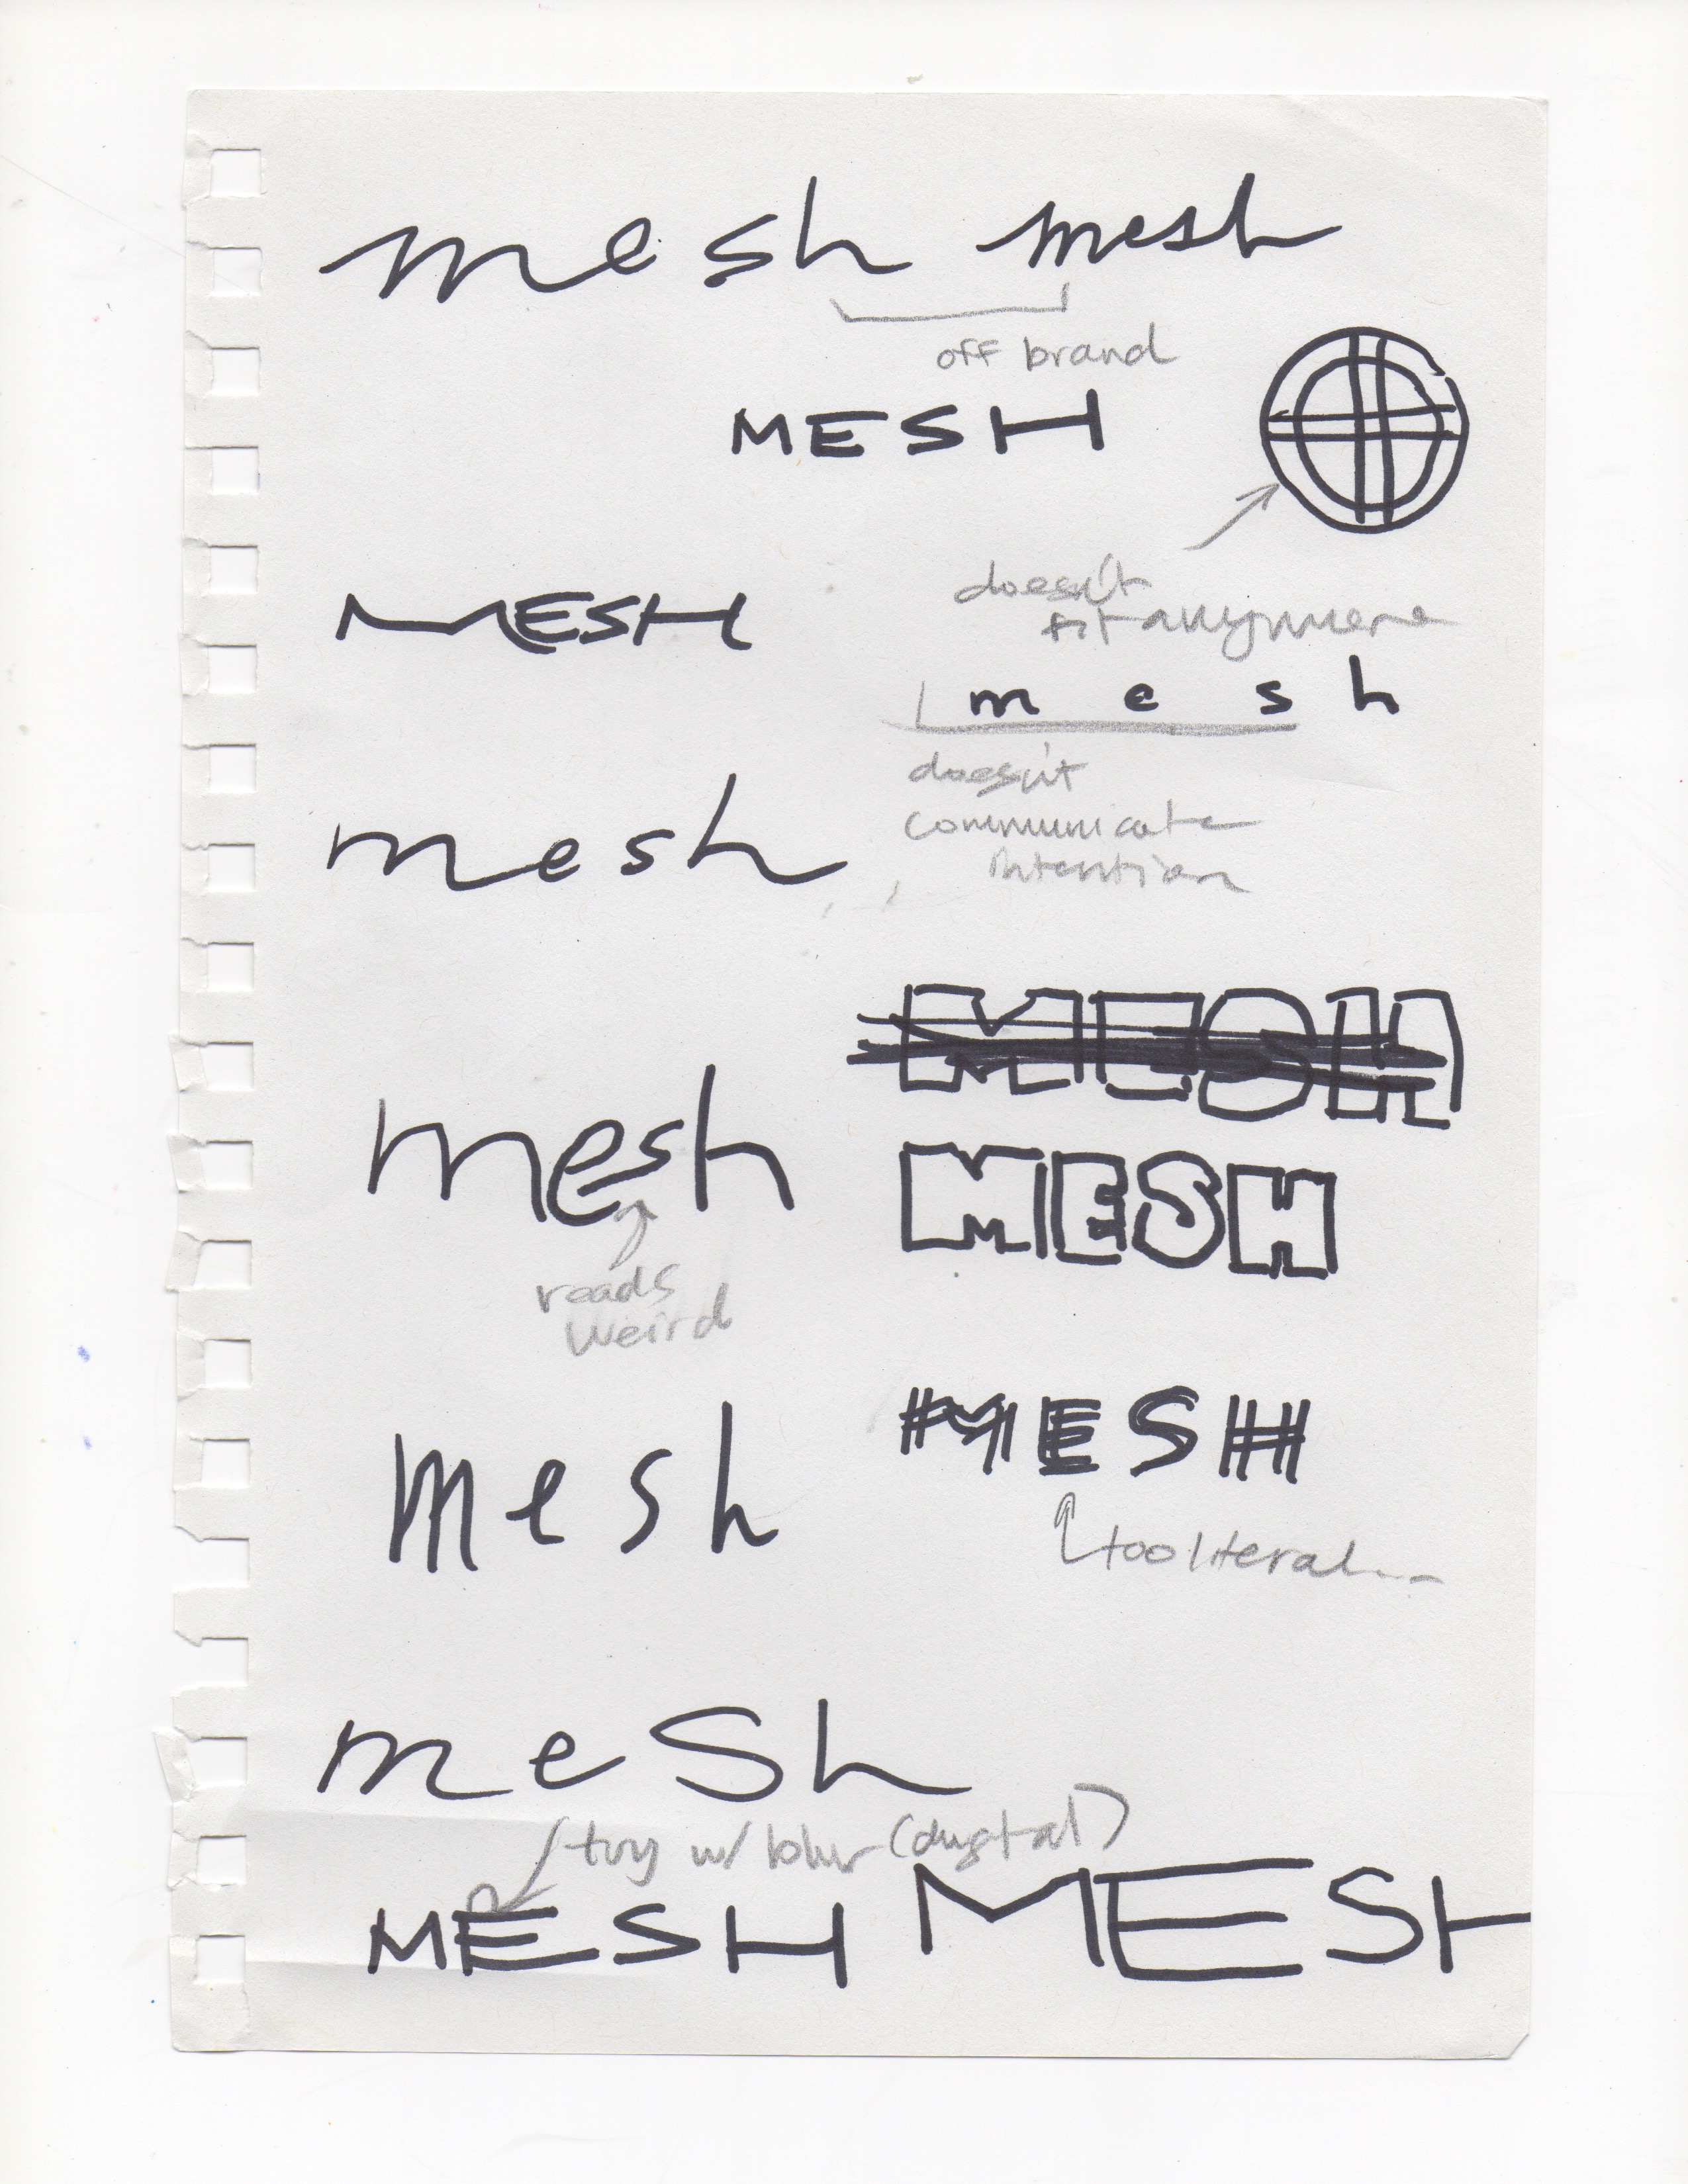 mesh mesh
off brand
MESH
MESH
doesn't
fit anymore
m e s h
doesn't
communicate
intention
mesh
MESH
mesh
MESH
reads
weird
MESH
mesh
too literal
meSh
try w/ blur (digital)
MESH MESH